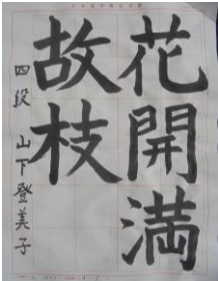 花開満
故枝
四段 山下登美子